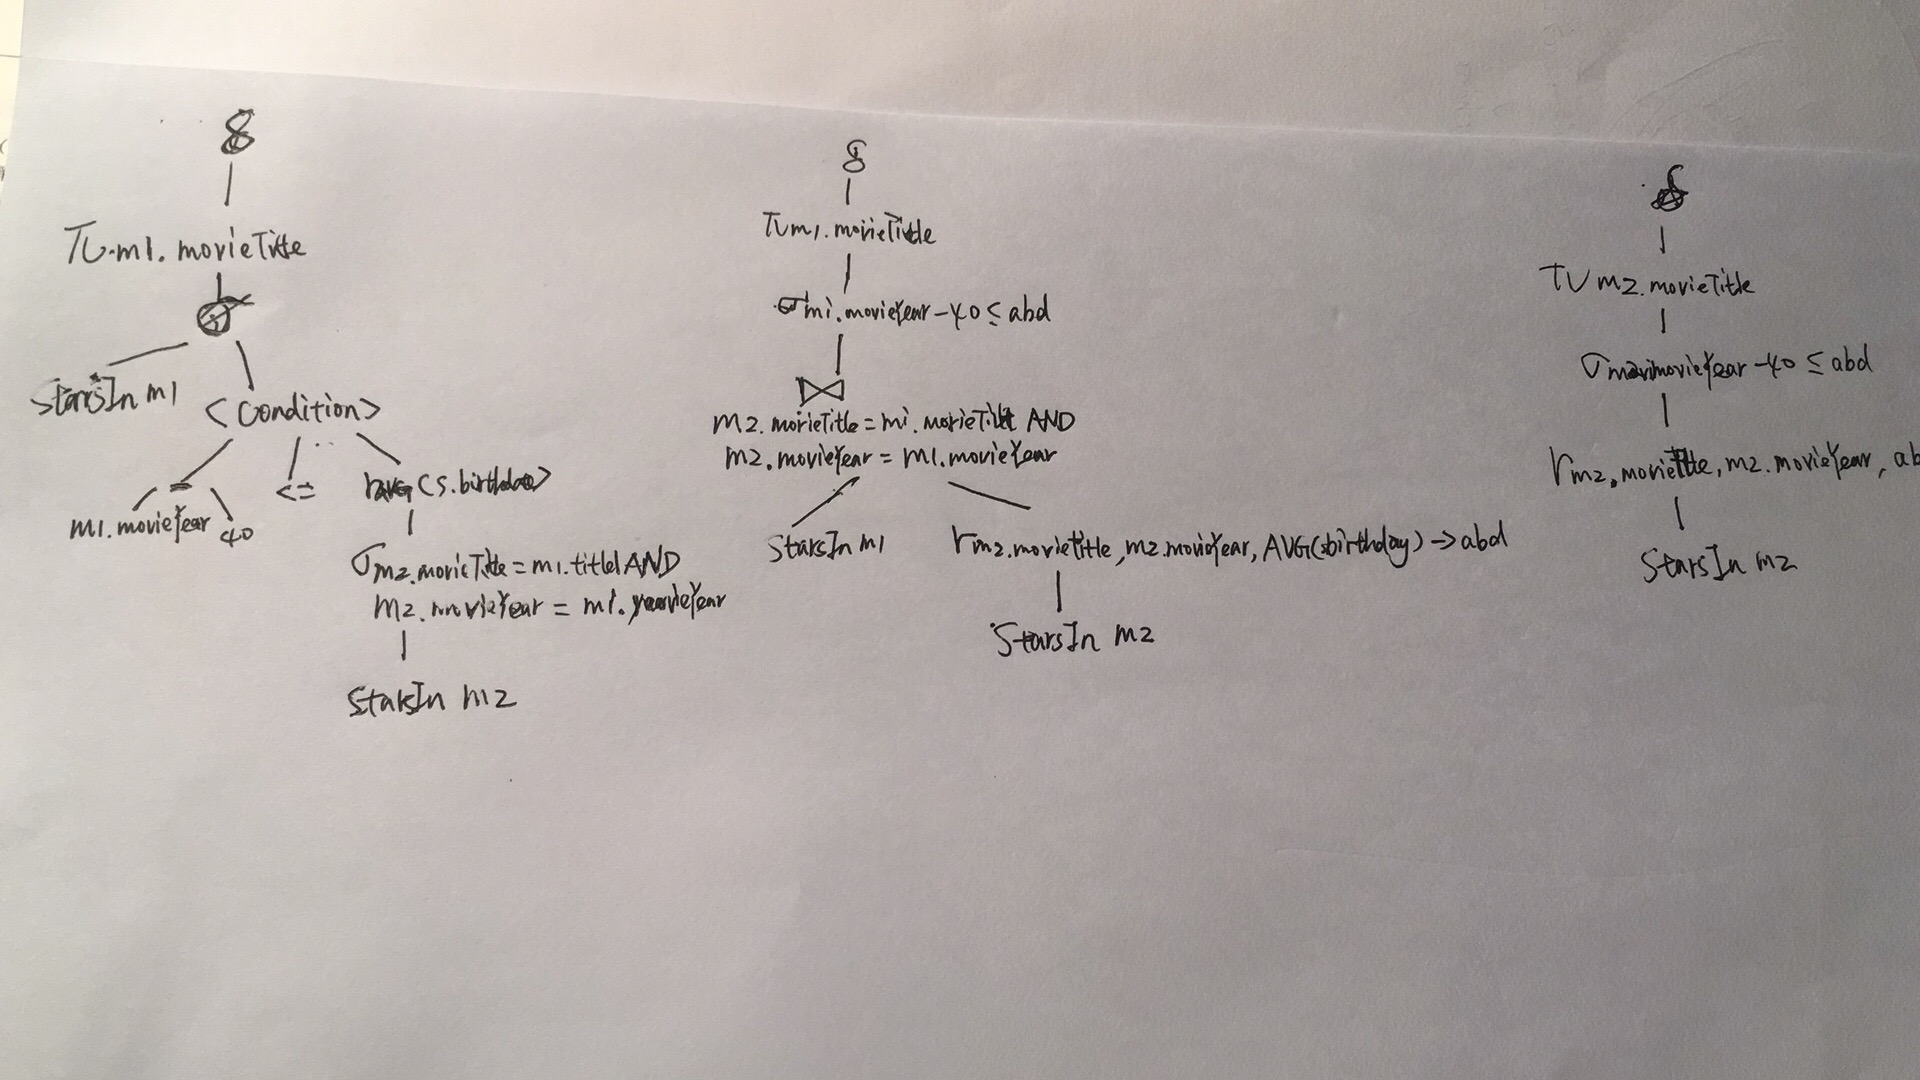 δ
π m1.movieTitle
σ
StarsIn m1
<Condition>
- <=
γAVG(s.birthdate)
m1.movieYear 40
σ m2.movieTitle = m1.title AND
m2.movieYear = m1.movieYear
StarsIn m2
δ
π m1.movieTitle
σ m1.movieYear - 40 ≤ abd
⋈
m2.movieTitle = m1.movieTitle AND
m2.movieYear = m1.movieYear
StarsIn m1
γ m2.movieTitle, m2.movieYear, AVG(s.birthday) → abd
StarsIn m2
δ
π m2.movieTitle
σ m2.movieYear - 40 ≤ abd
γ m2.movieTitle, m2.movieYear, ab
StarsIn m2